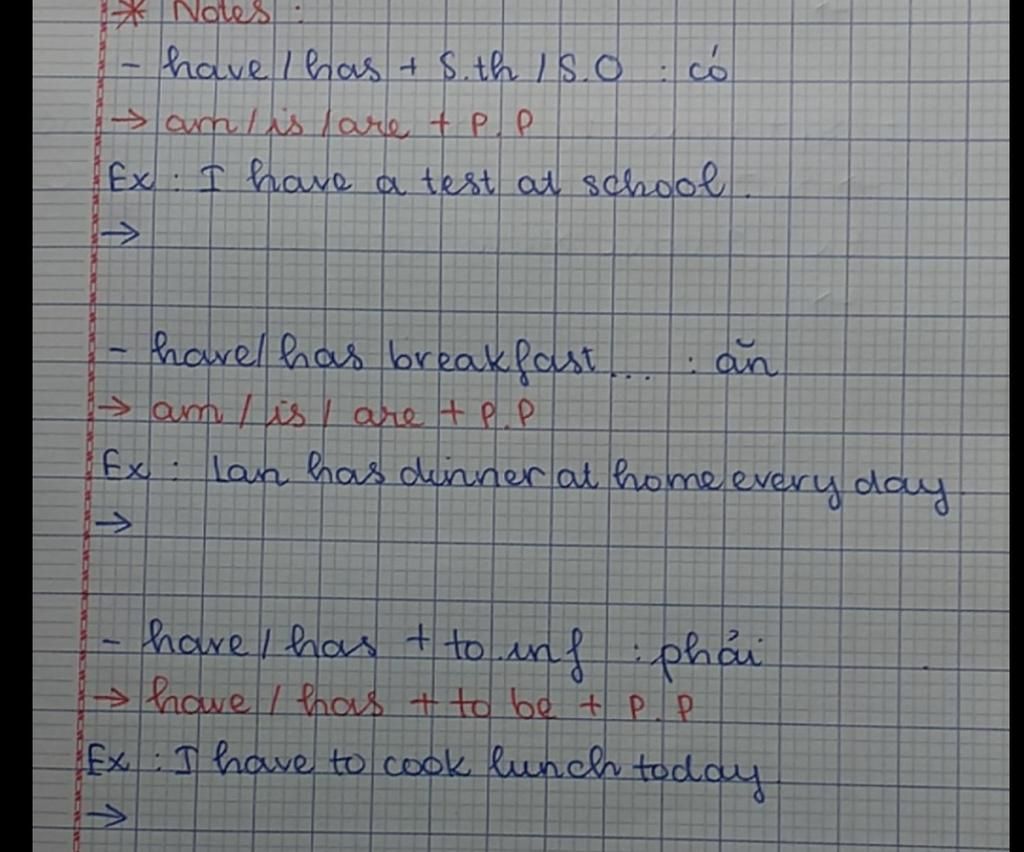 * Notes :
- have / has + S.th / S.O : có
→ am / is / are + P.P
Ex : I have a test at school.
→
- have / has breakfast... : ăn
→ am / is / are + P.P
Ex : Lan has dinner at home every day
→
- have / has + to inf : phải
→ have / has + to be + P.P
Ex : I have to cook lunch today
→